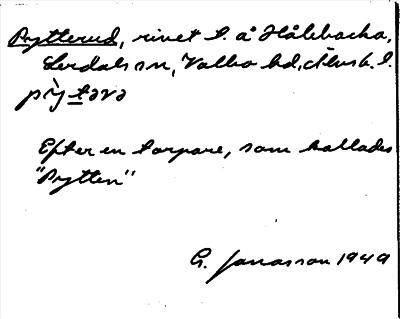 Prytterud, rivet t. å Hålebacka,
Lerdals sn, Valbo hd, Älvsb. l.
prỳtərə
Efter en torpare, som kallades
"Prytten"
G. Jonasson 1949